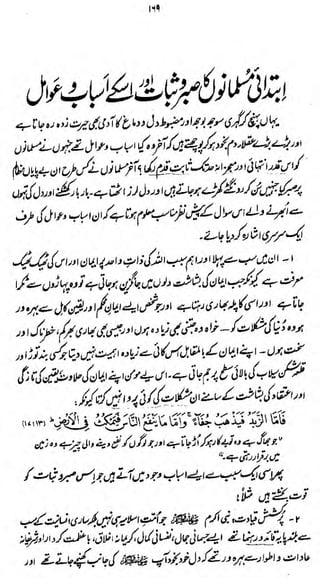 ۱۶۹
ابتدائی مسلمانوں کا صبر و ثبات اور اسکے اسباب و عوامل
یہاں پہنچ کر گہری سوجھ بوجھ اور مضبوط دل و دماغ کا آدمی بھی حیرت زدہ رہ جاتا ہے
اور بڑے بڑے عقلاء دم بخود ہو کر پوچھتے ہیں کہ آخر وہ کیا اسباب و عوامل تھے جنہوں نے مسلمانوں
کو اس قدر انتہائی اور معجزانہ حد تک ثابت قدم رکھا؟ آخر مسلمانوں نے کس طرح ان بے پایاں مظالم
پر صبر کیا جنہیں سُن کر رونگٹے کھڑے ہو جاتے ہیں اور دل لرز اٹھتا ہے۔ بار بار کھٹکنے اور دل کی تہوں
سے اُبھرنے والے اس سوال کے پیشِ نظر مناسب معلوم ہوتا ہے کہ ان اسباب و عوامل کی طرف
ایک سرسری اشارہ کر دیا جائے۔
۱ – ان میں سب سے پہلا اور اہم سبب اللہ کی ذاتِ واحد پر ایمان اور اس کی ٹھیک ٹھیک
معرفت ہے کیونکہ جب ایمان کی بشاشت دلوں میں جاگزیں ہو جاتی ہے تو وہ پہاڑوں سے ٹکرا
جاتا ہے اور اسی کا پلہ بھاری رہتا ہے اور جو شخص ایسے ایمانِ محکم اور یقینِ کامل سے بہرہ ور
ہو وہ دُنیا کی مشکلات کو – خواہ وہ جتنی بھی زیادہ ہوں اور جیسی بھی بھاری بھرکم، خطرناک اور
سخت ہوں – اپنے ایمان کے بالمقابل اس کائی سے زیادہ اہمیت نہیں دیتا جو کسی بند توڑ اور
قلعہ شکن سیلاب کی بالائی سطح پر جم جاتی ہے۔ اس لیے مومن اپنے ایمان کی حلاوت، یقین کی تازگی
اور اعتقاد کی بشاشت کے سامنے ان مشکلات کی کوئی پروا نہیں کرتا کیونکہ:
فَاَمَّا الزَّبَدُ فَيَذْهَبُ جُفَآءً ۚ وَاَمَّا مَا يَنْفَعُ النَّاسَ فَيَمْكُثُ فِي الْاَرْضِ ؕ (۱۷:۱۳)
”جو جھاگ ہے وہ تو بے کار ہو کر اُڑ جاتا ہے اور جو لوگوں کو نفع دینے والی چیز ہے وہ زمین
میں برقرار رہتی ہے۔“
پھر اسی ایک سبب سے ایسے اسباب وجود میں آتے ہیں جو اس صبر و ثبات کو
قوت بخشتے ہیں مثلاً:
۲ – پُرکشش قیادت: نبی اکرم ﷺ جو اُمتِ اسلامیہ ہی نہیں بلکہ ساری انسانیت کے سب
سے بلند پایہ قائد و رہنما تھے ایسے جسمانی جمال، نفسانی کمال، کریمانہ اخلاق، باعظمت کردار اور شریفانہ
عادات و اطوار سے بہرہ ور تھے کہ دل خود بخود آپ ﷺ کی جانب کھنچے جاتے تھے اور